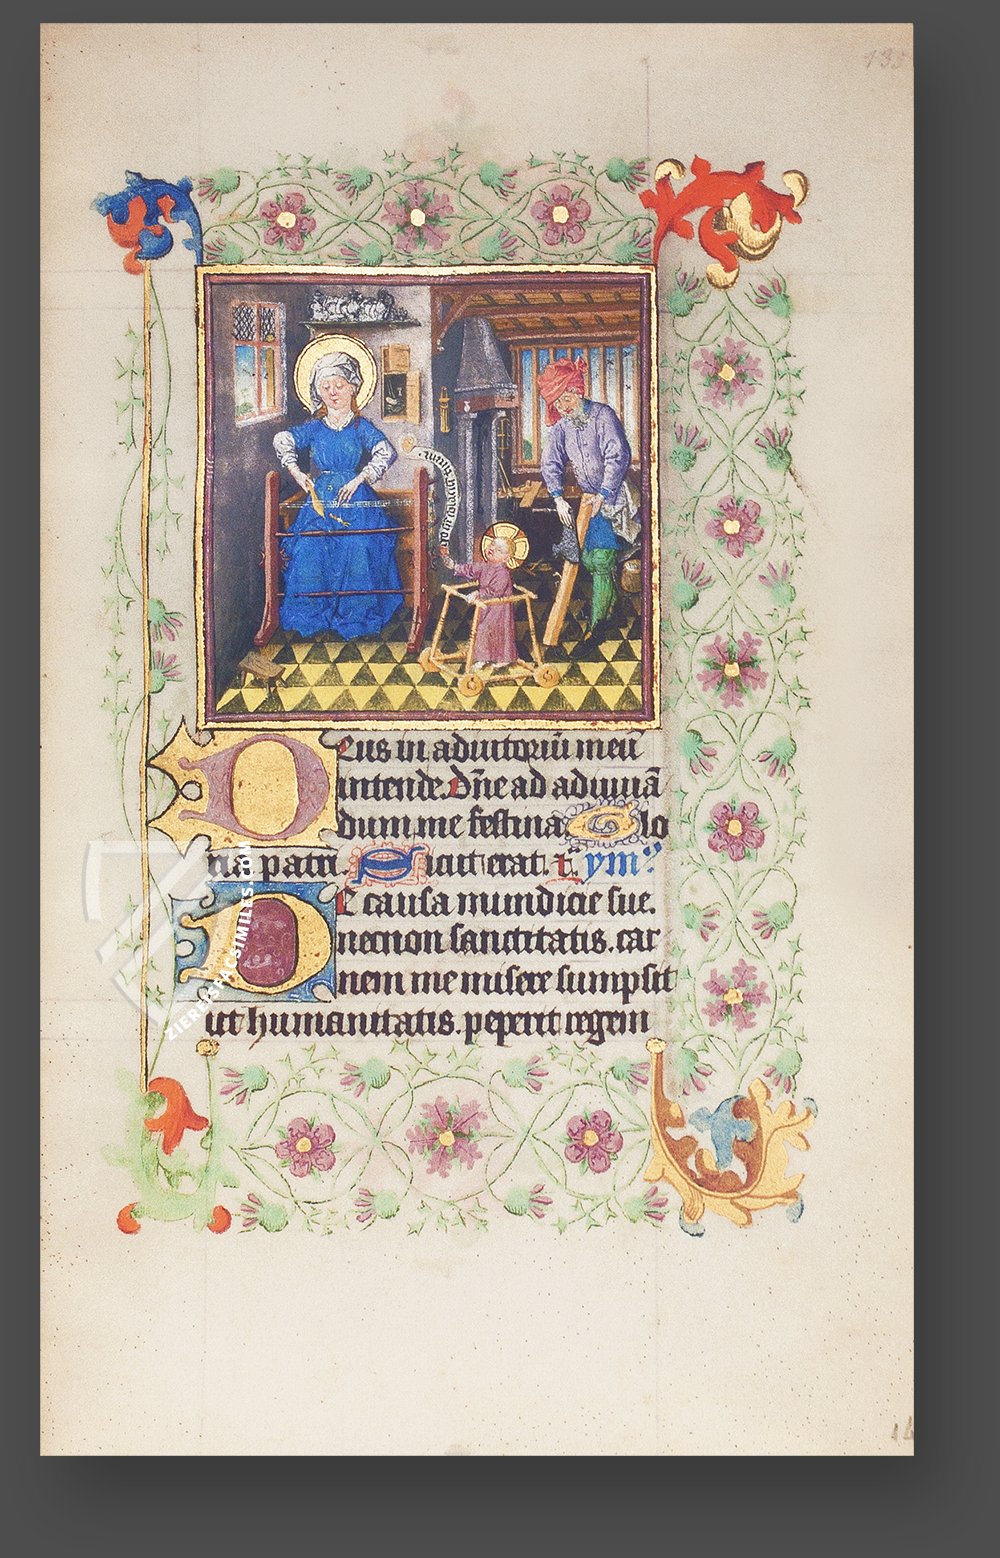 135
Deus in adiutoriū meū
intende. dn̄e ad adiuuā
dum me festina Glo
ria patri. Sicut erat. ymꝰ
De causa mundicie sue.
necnon sanctitatis. car
nem me misere sumpsit
et humanitatis. peperit regem
ZIEREISFACSIMILES.COM